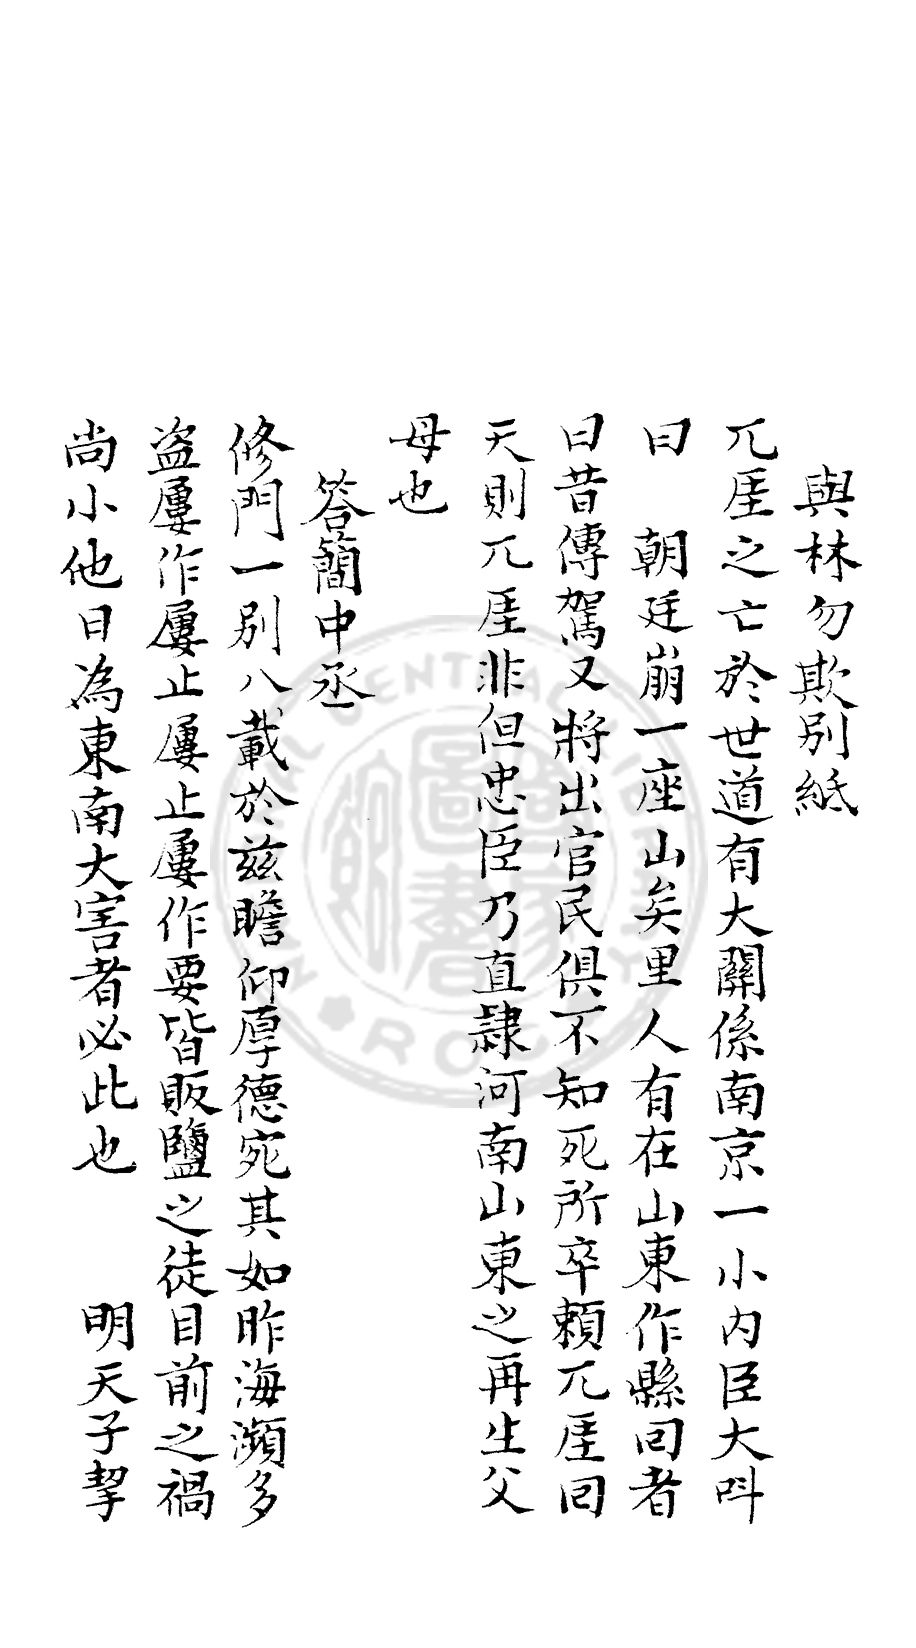 與林勿欺別紙
兀厓之亡於世道有大關係南京一小內臣大呌
曰　朝廷崩一座山矣里人有在山東作縣回者
曰昔傳駕又將出官民俱不知死所卒賴兀厓回
天則兀厓非但忠臣乃直隸河南山東之再生父
母也
答簡中丞
修門一別八載於兹瞻仰厚德宛其如昨海瀕多
盗屢作屢止屢止屢作要皆販鹽之徒目前之禍
尚小他日為東南大害者必此也　　明天子挈